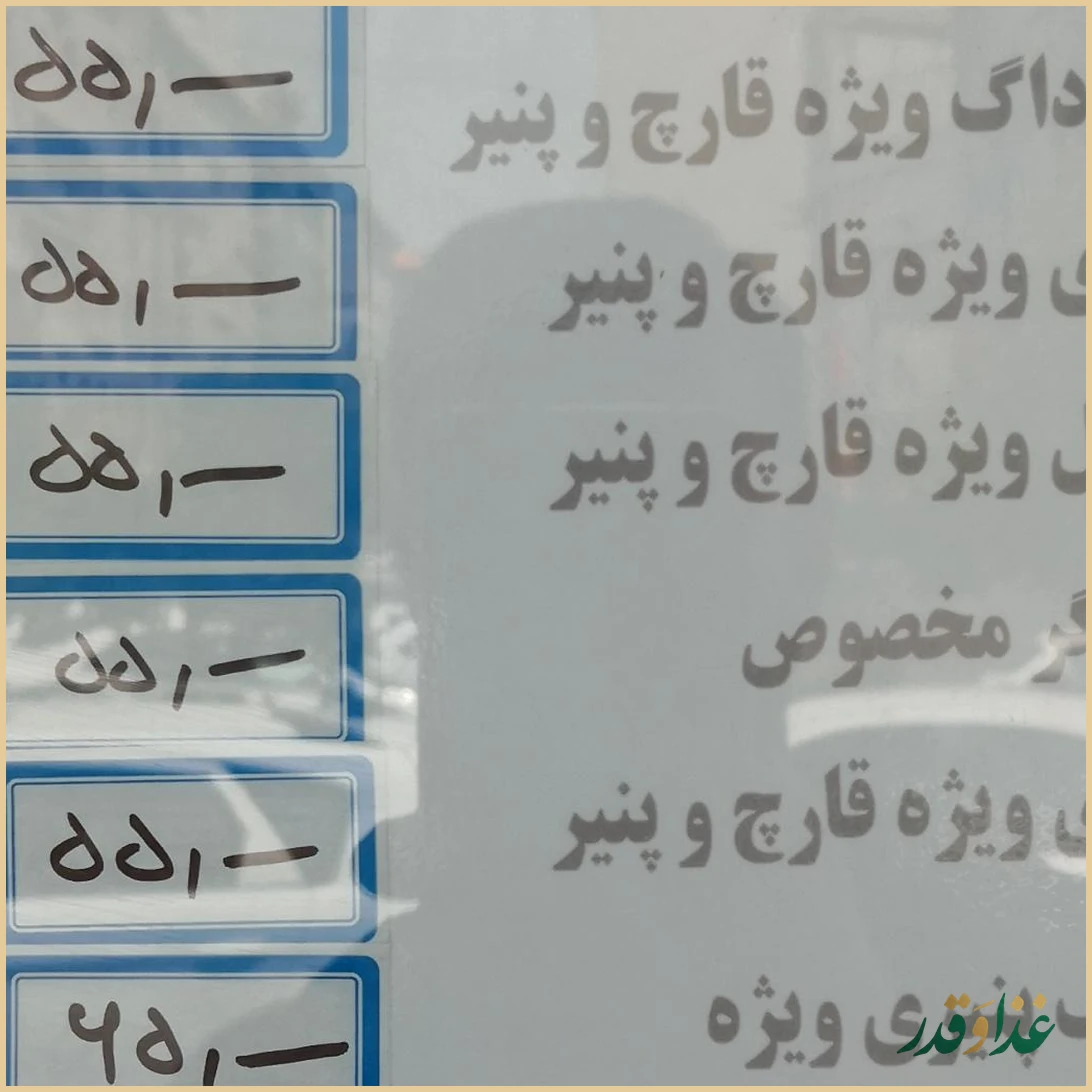 داگ ویژه قارچ و پنیر ۵۵,—
ویژه قارچ و پنیر ۵۵,—
ویژه قارچ و پنیر ۵۵,—
مخصوص ۵۵,—
ویژه قارچ و پنیر ۵۵,—
پنیری ویژه ۶۵,—
غذا و قدر